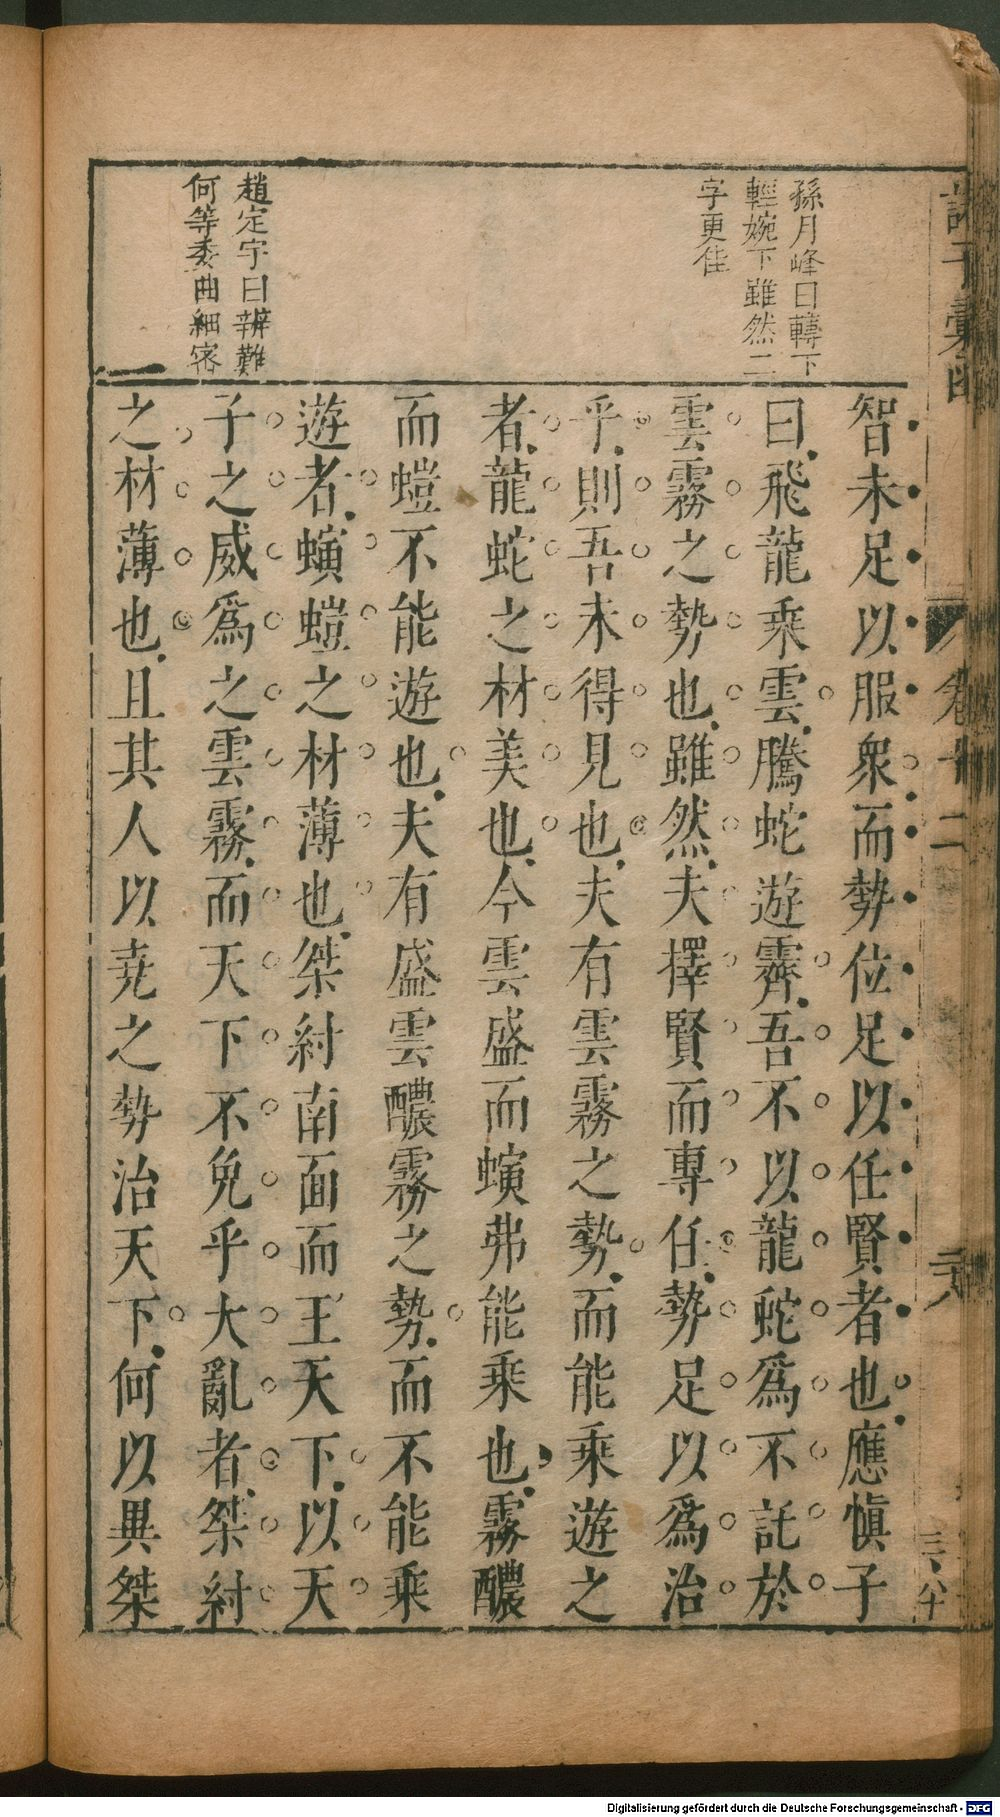 孫月峰曰轉下
輕婉下雖然二
字更佳
趙定宇曰辨難
何等委曲細密
智未足以服衆而勢位足以任賢者也應慎子
曰飛龍乘雲騰蛇遊霧吾不以龍蛇爲不託於
雲霧之勢也雖然夫擇賢而專任勢足以爲治
乎則吾未得見也夫有雲霧之勢而能乘遊之
者龍蛇之材美也今雲盛而螾弗能乘也霧醲
而螘不能遊也夫有盛雲醲霧之勢而不能乘
遊者螾螘之材薄也桀紂南面而王天下以天
子之威爲之雲霧而天下不免乎大亂者桀紂
之材薄也且其人以尭之勢治天下何以異桀
卷十二
Digitalisierung gefördert durch die Deutsche Forschungsgemeinschaft - DFG